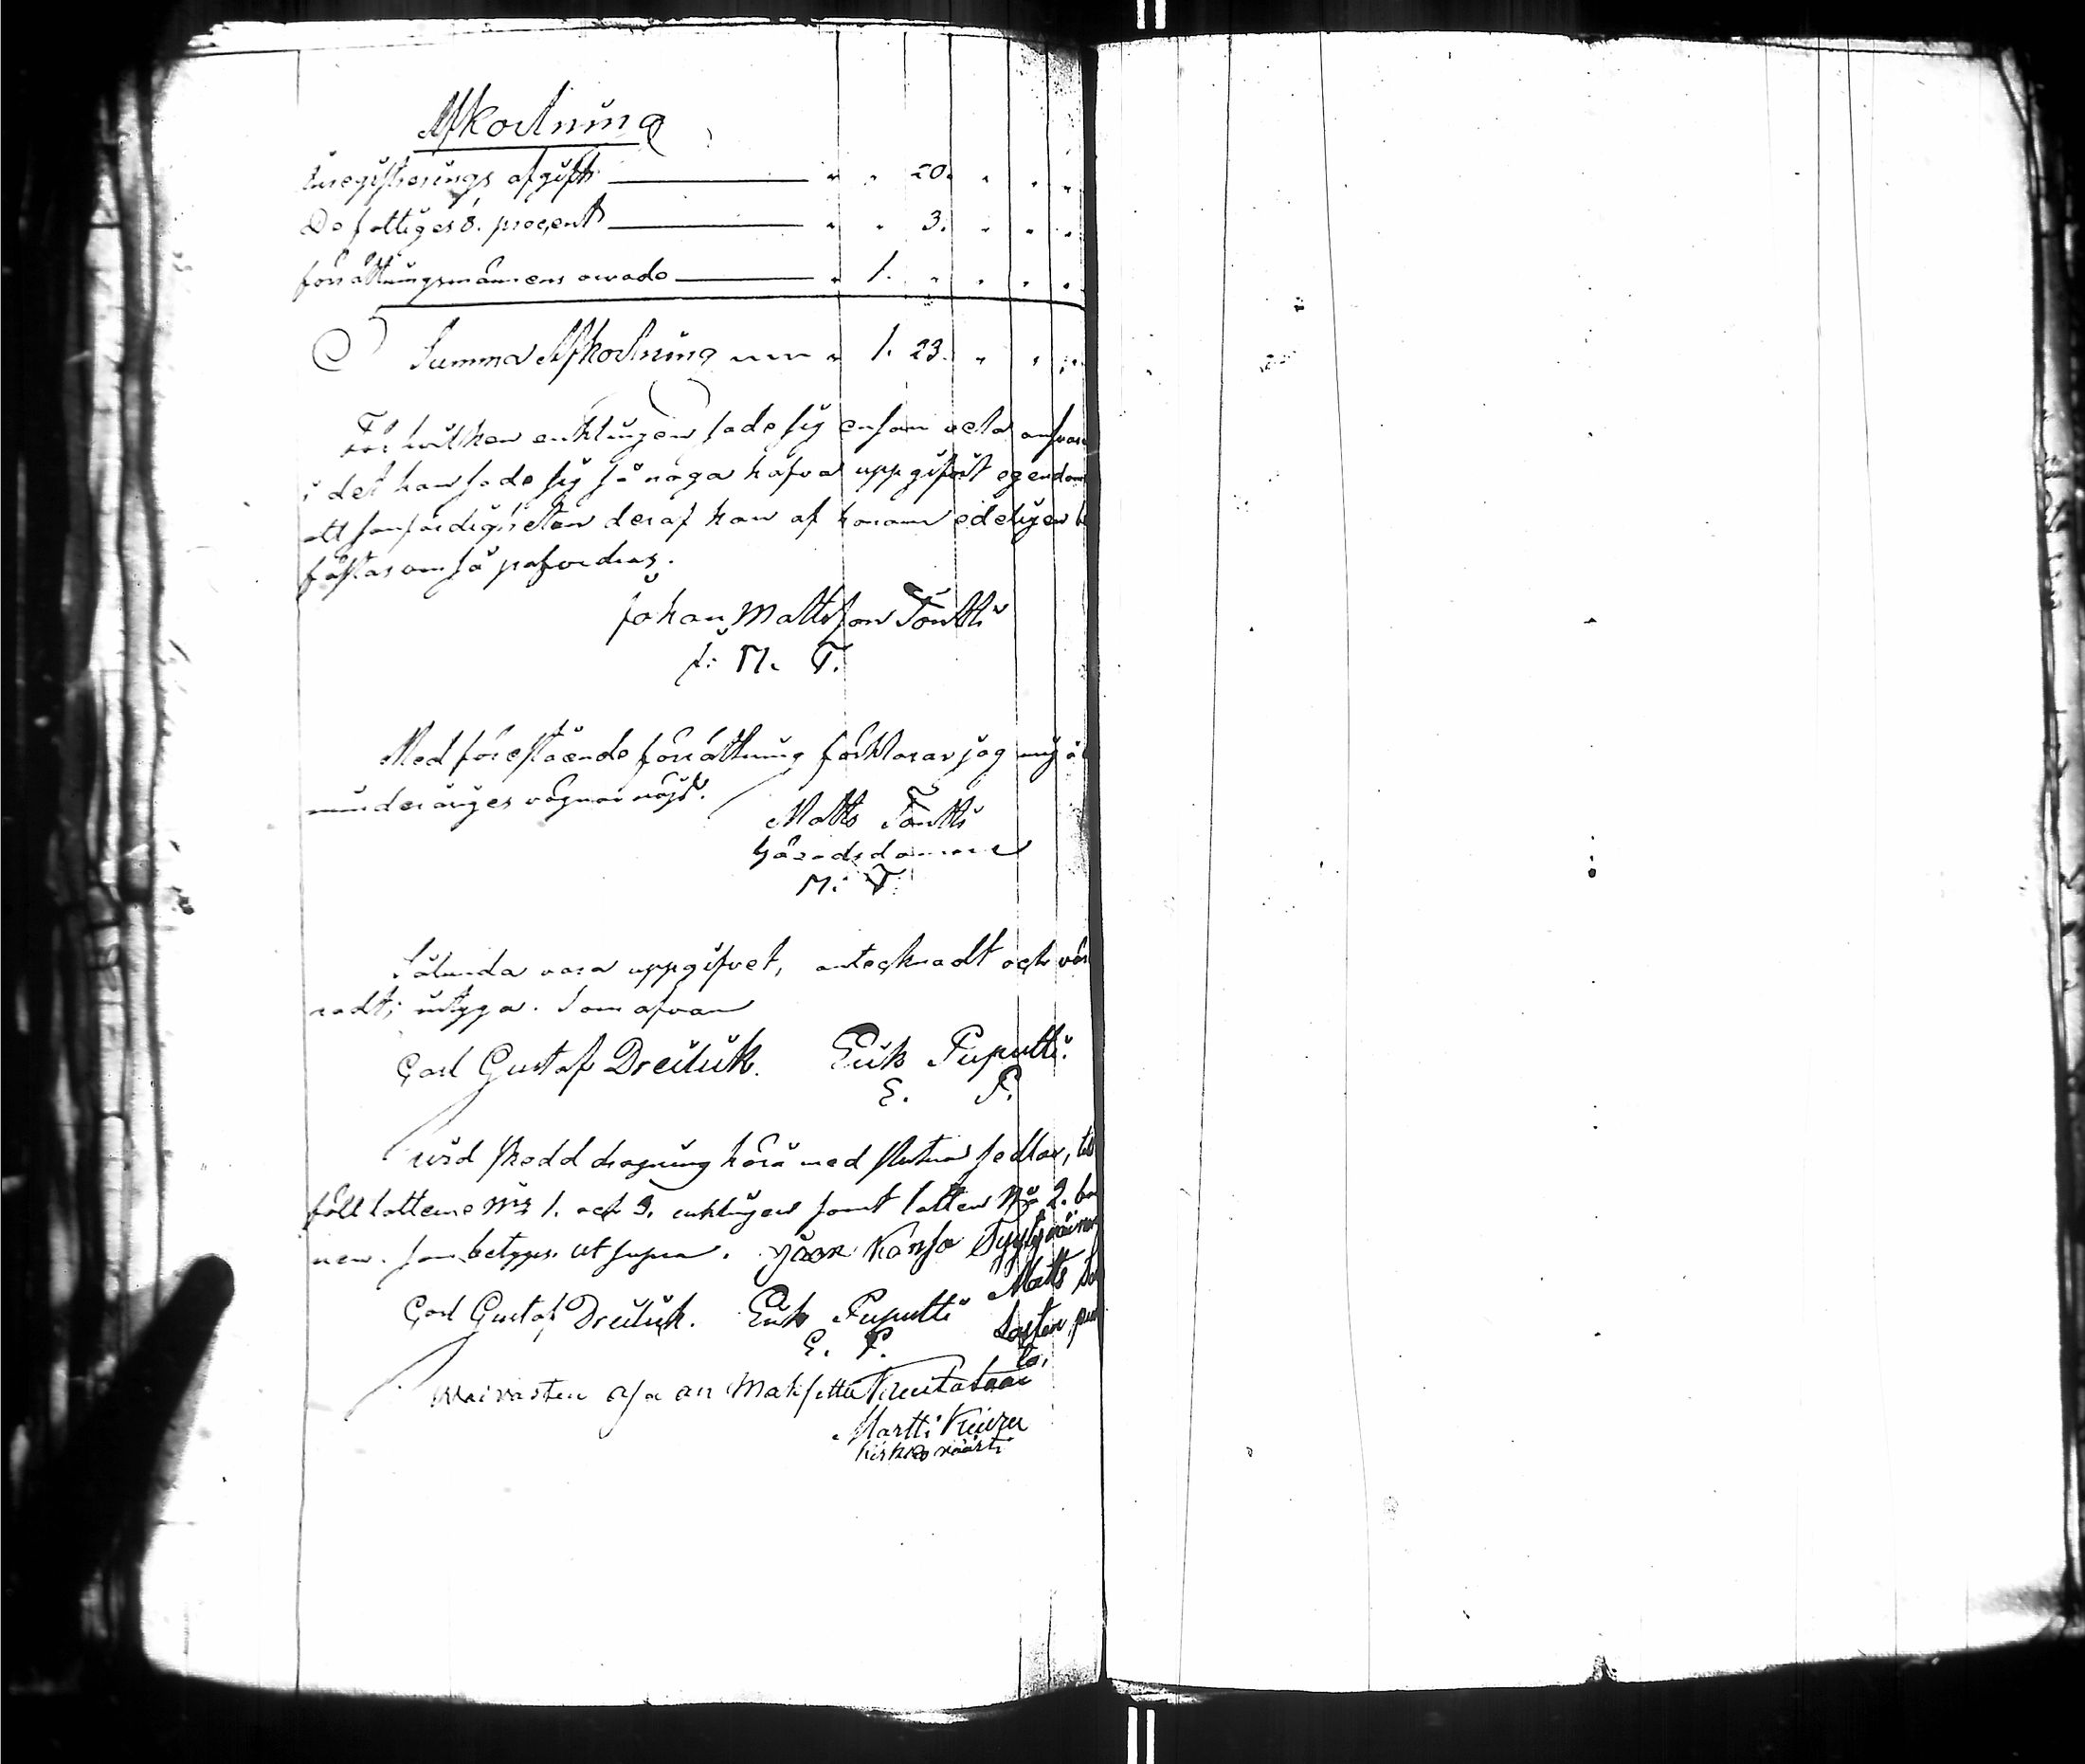 Afkortning
Inregistrerings afgift " " 20. " " "
De fattiges 8. procent " " 3. " " "
förrättningsmännens arvode " 1. " " " "
Summa Afkortning " 1. 23. " " "
För hvilken enklingen sade sig ensam veta ansvar
i det han sade sig så noga hafva uppgifvit egendom
att sanfärdigheten deraf kan af honom edeligen be
fästas om så påfordras.
Johan Mattsson Tontti
J: M. T.
Med förestående förrättning förklarar jag mig å
minderåriges vägnar nöjd.
Matts Tontti
häradsdomare
M: T
Sålunda vara uppgifvet, antecknadt och vär
radt; intyga. Som ofvan
Carl Gustaf Dreilick. Erik Puputti.
E. P.
wid skedd dragning härå med slutna sedlar, till
föll lotterne No 1. och 3. enklingen samt lotten No 2. bar
nen. som betygas. Ut supra. Jaon Kansa Tyytyväinen
Matts
Carl Gustaf Dreilick. Erik Puputti Lasten
E. P.
waivasten osa on Maksettu
Martti
Kirkko väärti